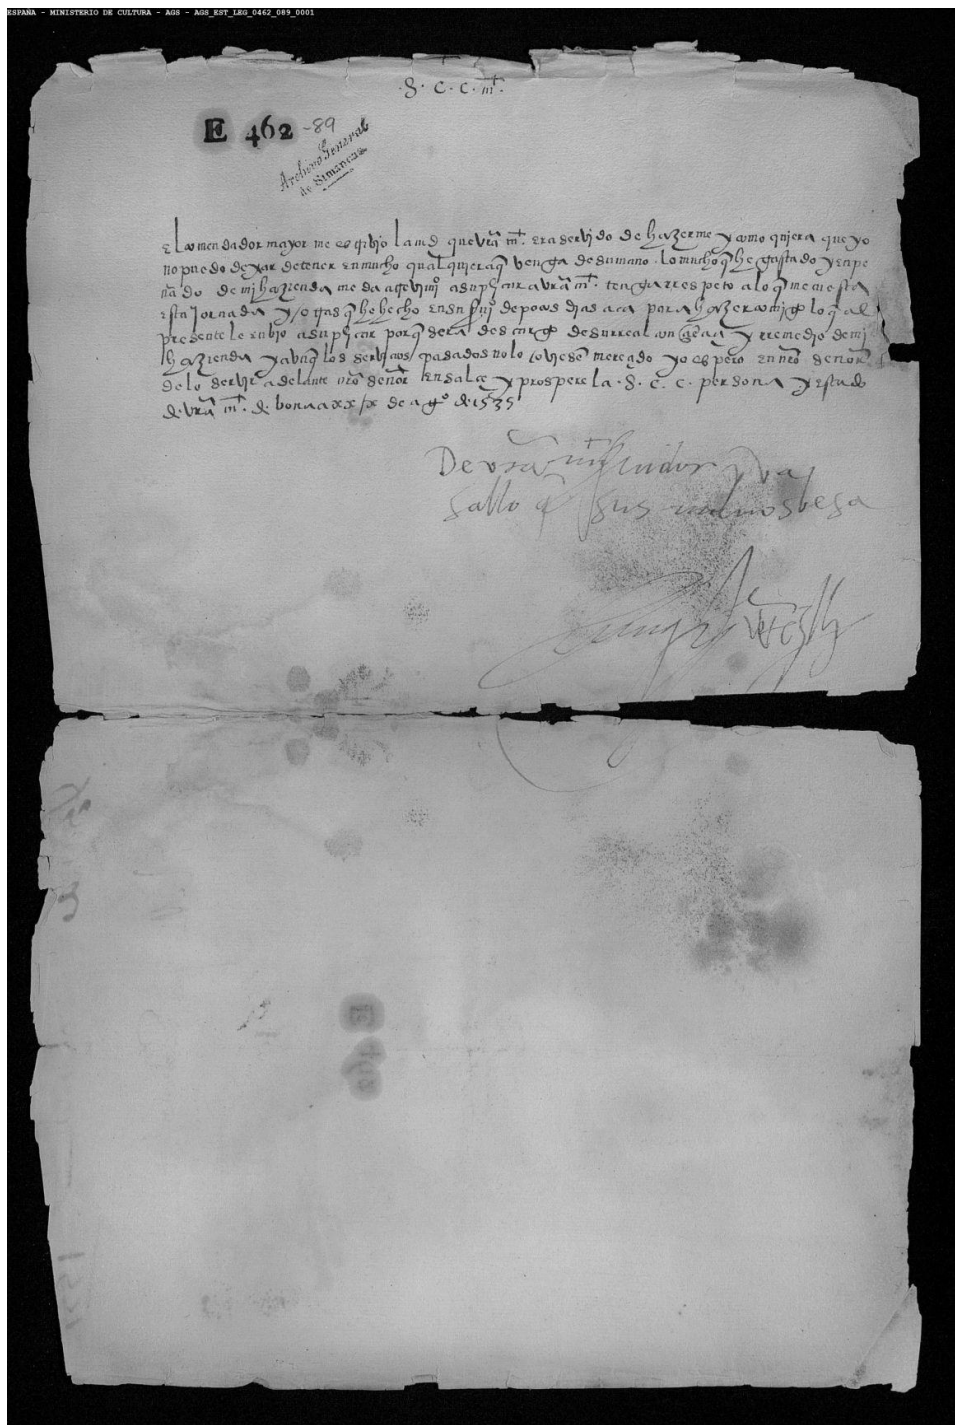 ESPAÑA - MINISTERIO DE CULTURA - AGS - AGS_EST_LEG_0462_089_0001
.S. c. c. mt.
E 462 -89
Archivo General
de Simancas
El comendador mayor me escrivio la md que vra mt. era servido de hazerme y como quiera que yo
no puedo dexar de tener en mucho qualquiera q venga de su mano. lo mucho q he gastado y enpe
ñado de mi hazienda me da atrevimio a suplicar a vra mt. tenga rrespeto a lo q me cuesta
esta jornada y otras q he hecho en su svio de pocos dias aca para hazer comigo lo q al
presente le enbio a suplicar porq sera descargo de su rreal conçiençia y rremedio de mi
hazienda y avnq los serviçios pasados no lo oviesen mereçido yo espero en nro señor
de lo servir adelante nro señor ensalçe y prospere la .S. c. c. persona y estado
de vra mt. de bona a xxix de ago de 1535
De vra mt servidor y va
sallo q sus manos besa